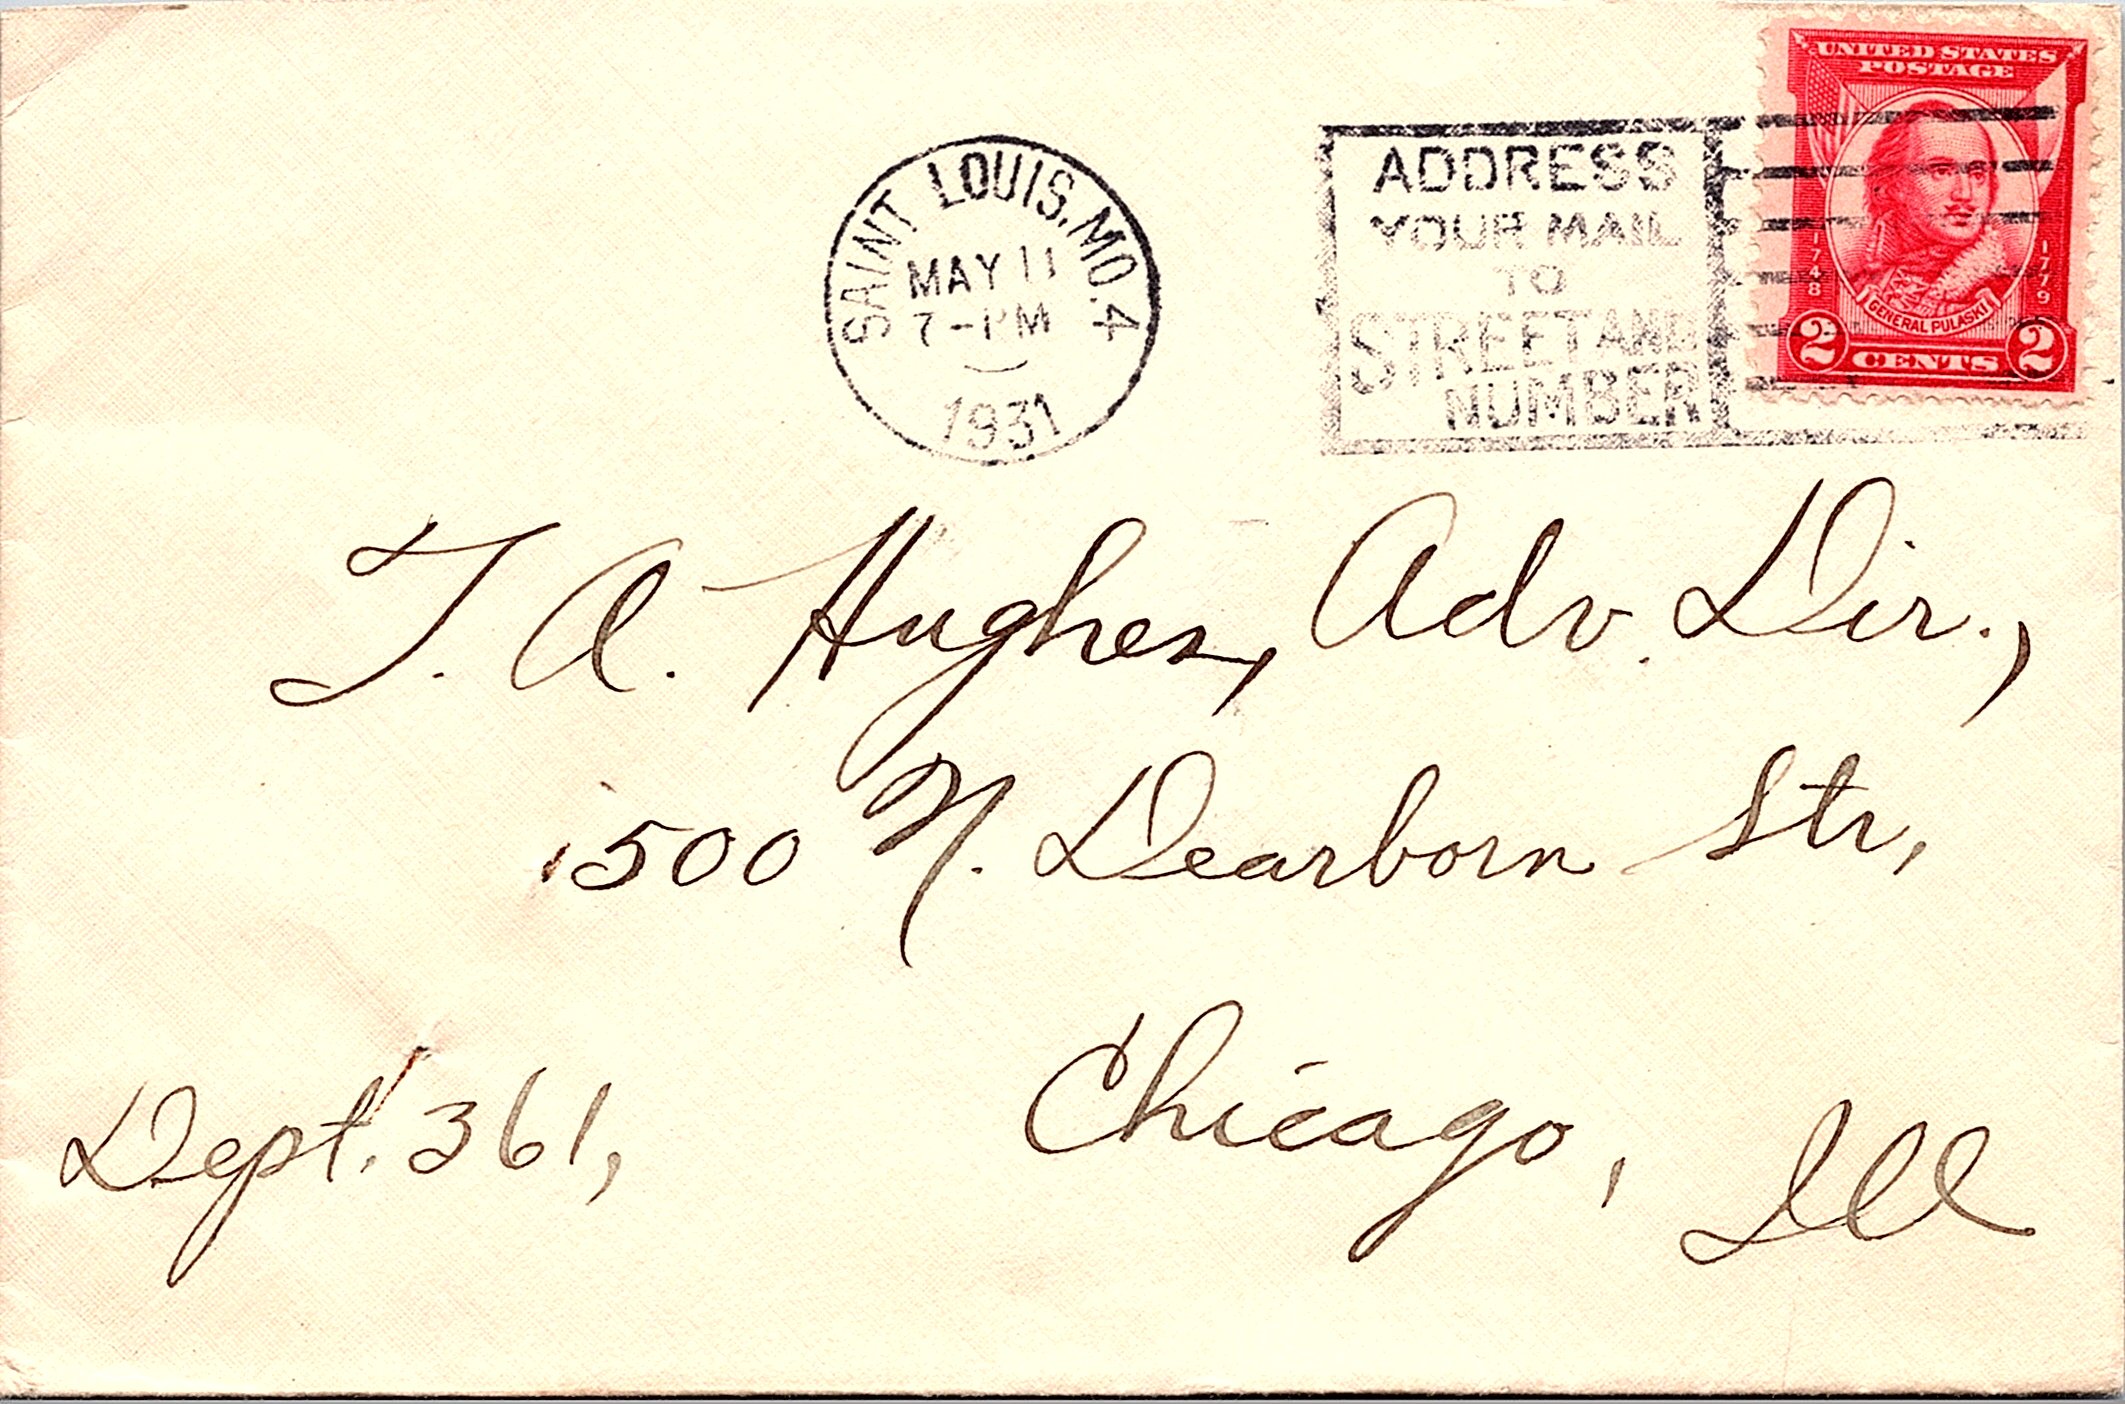 UNITED STATES
POSTAGE
1748
1779
GENERAL PULASKI
2 CENTS 2
SAINT LOUIS, MO. 4
MAY 11
7-PM
1931
ADDRESS
YOUR MAIL
TO
STREET AND
NUMBER
T. A. Hughes, Adv. Dir.,
500 N. Dearborn Str,
Chicago, Ill
Dept. 361,